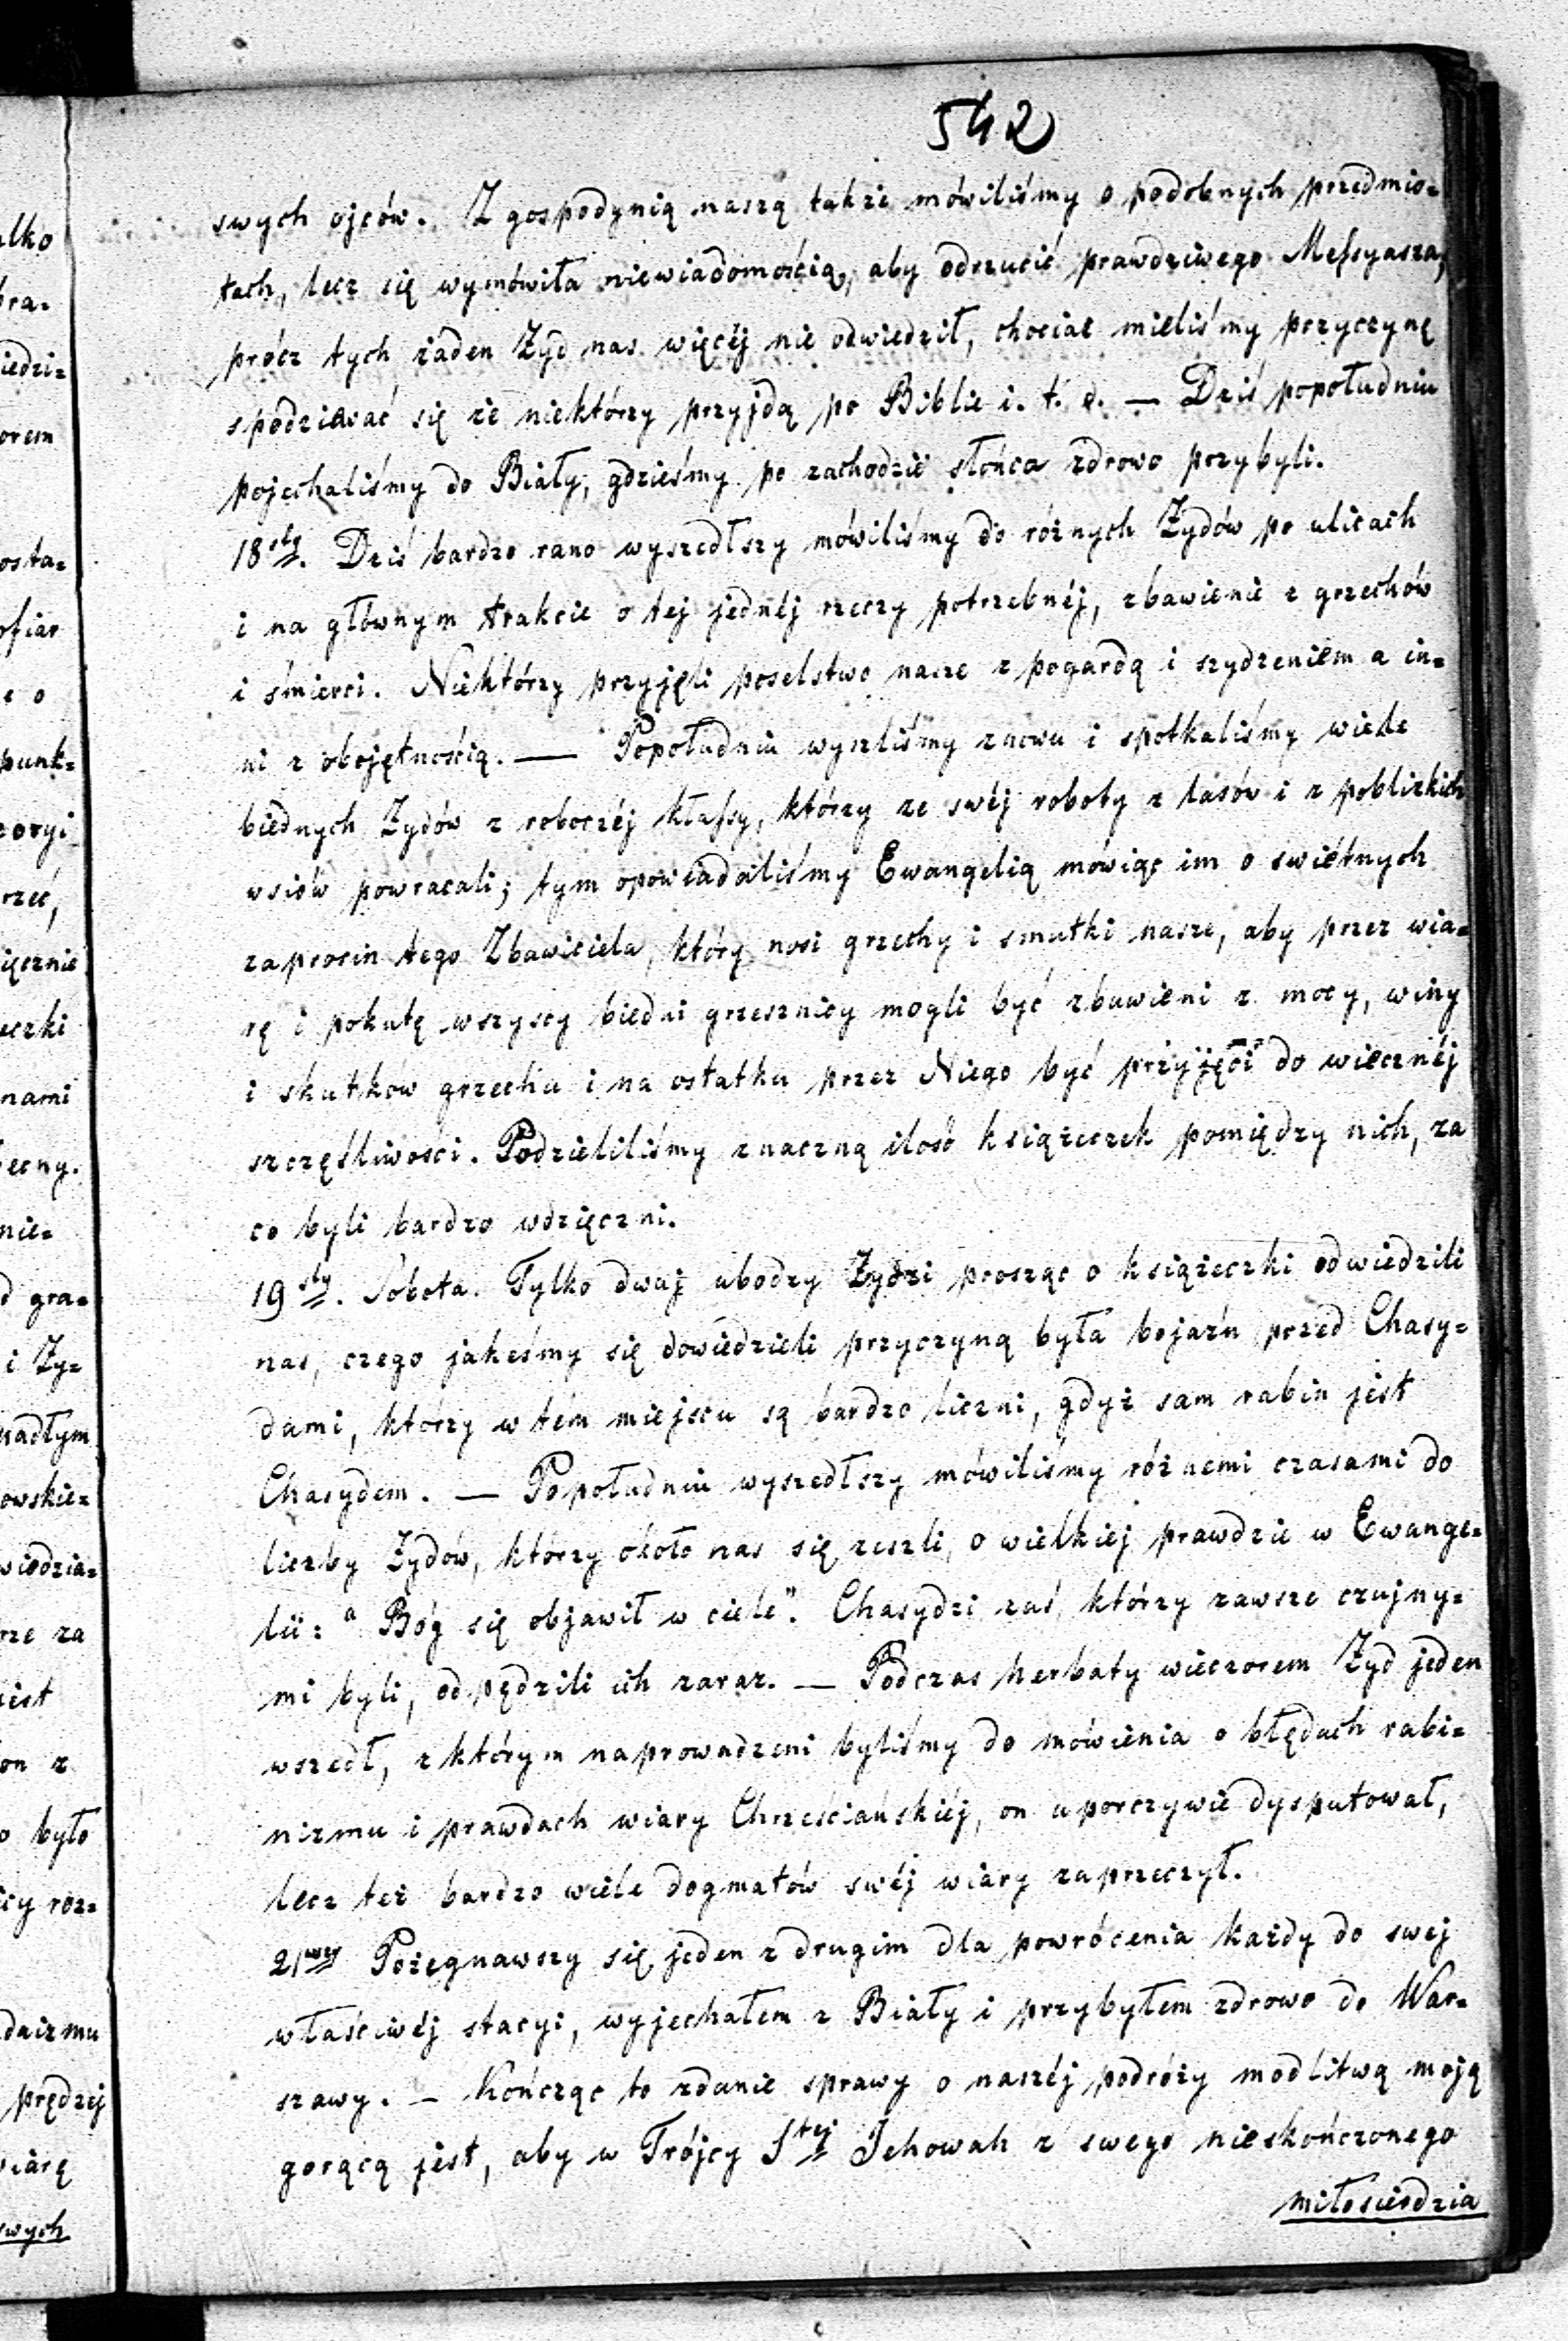 542
swych ojców. Z gospodynią naszą także mówiliśmy o podobnych przedmio=
tach, lecz się wymówiła niewiadomością, aby odrzucić prawdziwego Messyasza,
prócz tych żaden Żyd nas więcéj nie odwiedził, chociaż mieliśmy przyczynę
spodziewać się że niektórzy przyjdą po Biblie i. t. d. — Dziś popołudniu
pojechaliśmy do Biały, gdzieśmy po zachodzie słońca zdrowo przybyli.
18sty. Dziś bardzo rano wyszedłszy mówiliśmy do różnych Żydów po ulicach
i na głównym trakcie o tej jednéj rzeczy potrzebnéj, zbawienie z grzechów
i śmierci. Niektórzy przyjęli poselstwo nasze z pogardą i szydzeniem a in=
ni z obojętnością. — Popołudniu wyszliśmy znowu i spotkaliśmy wiele
biednych Żydów z roboczéj klassy, którzy ze swéj roboty z lasów i z poblizkich
wsiów powracali; tym opowiadaliśmy Ewangelią mówiąc im o swiétnych
zaprosin tego Zbawiciela, który nosi grzechy i smutki nasze, aby przez wia=
rę i pokutę wszyscy biedni grzesznicy mogli być zbawieni z mocy, winy
i skutków grzechu i na ostatku przez Niego być przyjęci do wiecznéj
szczęśliwosci. Podzieliliśmy znaczną ilosć książeczek pomiędzy nich, za
co byli bardzo wdzięczni.
19sty. Sobota. Tylko dwaj ubodzy Żydzi prosząc o książeczki odwiedzili
nas, czego jakeśmy się dowiedzieli przyczyną była bojaźń przed Chasy=
dami, którzy w tém miejscu są bardzo liczni, gdyż sam rabin jest
Chasydem. — Popołudniu wyszedłszy mówiliśmy różnemi czasami do
liczby Żydów, którzy około nas się zeszli, o wielkiej prawdzie w Ewange=
lii: "Bóg się objawił w ciele". Chasydzi zaś, którzy zawsze czujny=
mi byli, odpędzili ich zaraz. — Podczas herbaty wieczorem Żyd jeden
wszedł, z którym naprowadzeni byliśmy do mówienia o błędach rabi=
nizmu i prawdach wiary Chrześciańskiéj, on uporczywie dysputował,
lecz też bardzo wiele dogmatów swéj wiary zaprzeczył.
21wszy Pożegnawszy się jeden z drugim dla powrócenia każdy do swej
właściwéj stacyi, wyjechałem z Biały i przybyłem zdrowo do War=
szawy. — Kończąc to zdanie sprawy o naszéj podróży modlitwą moją
gorącą jest, aby w Trójcy Stej Jehowah z swego nieskończonego
miłosierdzia